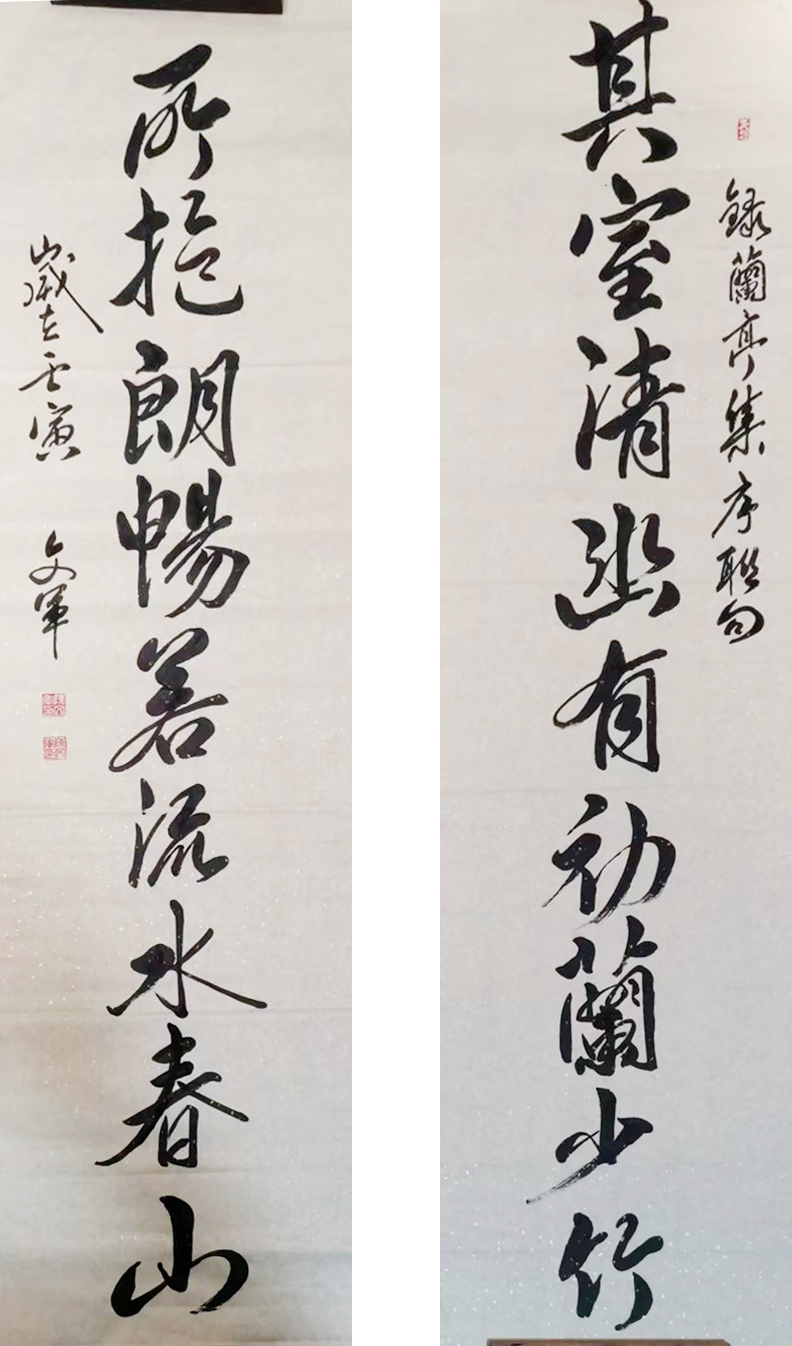 錄蘭亭集序聯句
其室清幽有初蘭少竹
所抱朗暢若流水春山
歲在壬寅 文軍